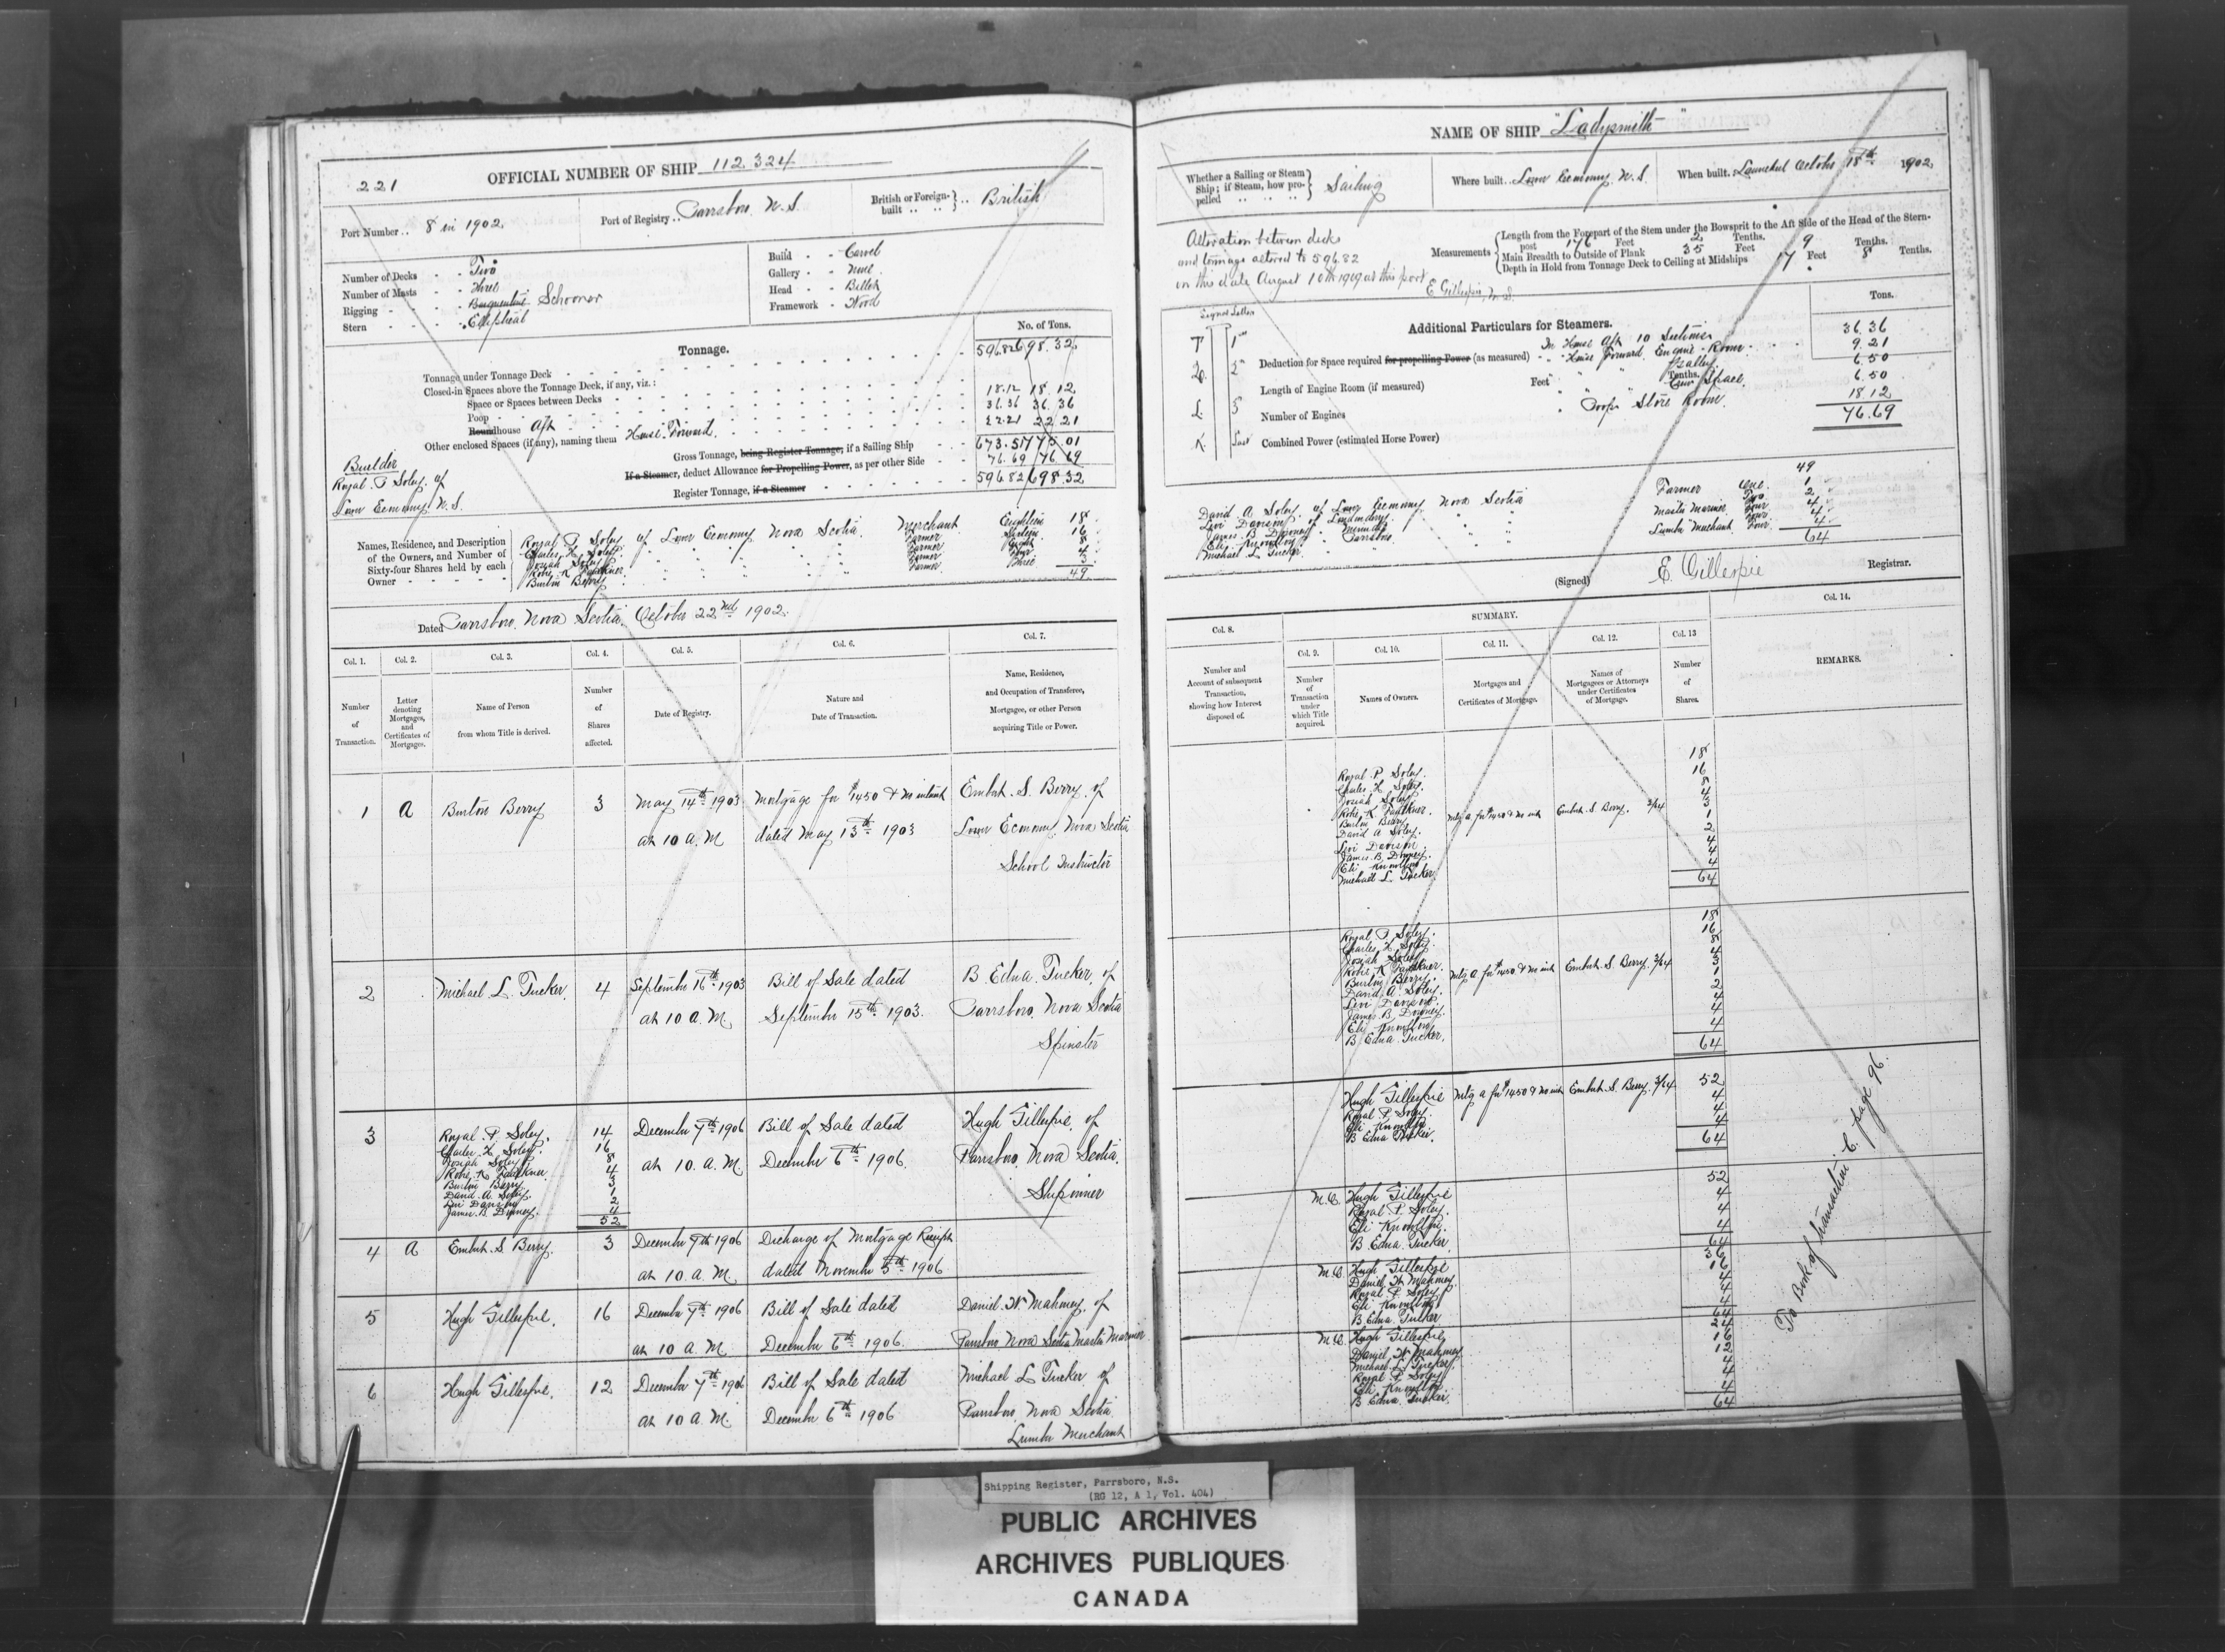 221
OFFICIAL NUMBER OF SHIP 112.324
Port Number .. 8 in 1902.
Port of Registry .. Parrsboro. N.S.
British or Foreign-built .. British
Number of Decks - - Two
Number of Masts - - Three
Rigging - - - Barquentine Schooner
Stern - - - - Elliptical
Build - - Carvel
Gallery - - None
Head - - Billet
Framework - Wood
Tonnage.
No. of Tons.
Tonnage under Tonnage Deck 596.82 698.32
Closed-in Spaces above the Tonnage Deck, if any, viz.:
Space or Spaces between Decks
Poop 18.12 18.12
Roundhouse Aft 36.36 36.36
Other enclosed Spaces (if any), naming them House Forward. 22.21 22.21
Gross Tonnage, being Register Tonnage, if a Sailing Ship 673.51 775.01
If a Steamer, deduct Allowance for Propelling Power, as per other Side 76.69 76.69
Register Tonnage, if a Steamer 596.82 698.32
Builder
Royal P. Soley of
Lower Economy N.S.
Names, Residence, and Description of the Owners, and Number of Sixty-four Shares held by each Owner
Royal P. Soley of Lower Economy Nova Scotia Merchant Eighteen 18
Charles H. Soley Farmer Sixteen 16
Josiah Soley Farmer Eight 8
Robt. K. Faulkner Farmer Four 4
Burton Berry Farmer Three 3
49
Dated Parrsboro. Nova Scotia. October 22nd 1902.
Col. 1. Col. 2. Col. 3. Col. 4. Col. 5. Col. 6. Col. 7.
Number of Transaction.
Letter denoting Mortgages, and Certificates of Mortgages.
Name of Person from whom Title is derived.
Number of Shares affected.
Date of Registry.
Nature and Date of Transaction.
Name, Residence, and Occupation of Transferee, Mortgagee, or other Person acquiring Title or Power.
1 A Burton Berry 3 May 14th 1903 Mortgage for $1450 & no interest Embert. S. Berry. of
at 10 A.M. dated May 13th 1903 Lower Economy Nova Scotia
School Instructor
2 Michael L. Tucker. 4 September 16th 1903 Bill of Sale dated B Edna Tucker, of
at 10 A.M. September 15th 1903. Parrsboro. Nova Scotia
Spinster
3 Royal P. Soley. 14 December 7th 1906 Bill of Sale dated Hugh Gillespie. of
Charles H. Soley. 16
Josiah Soley. 8 at 10. A.M. December 6th 1906. Parrsboro. Nova Scotia.
Robt. K. Faulkner. 4
Burton Berry 3 Shipowner
David A. Soley. 1
Levi Davison 2
James B. Downey. 4
52
4 A Embert. S. Berry. 3 December 7th 1906 Dicharge of Mortgage Receipt
at 10. A.M. dated November 5th 1906
5 Hugh Gillespie. 16 December 7th 1906 Bill of Sale dated Daniel. W. Mahoney. of
at 10 A.M. December 6th 1906. Parrsboro Nova Scotia Master Mariner
6 Hugh Gillespie. 12 December 7th 1906 Bill of Sale dated Michael L. Tucker, of
at 10 A.M. December 6th 1906 Parrsboro. Nova Scotia
Lumber Merchant
NAME OF SHIP "Ladysmith"
Whether a Sailing or Steam Ship; if Steam, how propelled Sailing
Where built .. Lower Economy. N.S.
When built .. Launched October 18th 1902.
Alteration between decks
and tonnage altered to 596.82
on this date August 10th 1909 at this port
E Gillespie,
Measurements
Length from the Forepart of the Stem under the Bowsprit to the Aft Side of the Head of the Stern-post 176 Feet 2 Tenths.
Main Breadth to Outside of Plank 35 Feet 9 Tenths.
Depth in Hold from Tonnage Deck to Ceiling at Midships 17 Feet 8 Tenths.
Signal Letters
T. 1st
L. 3
K. Last
Additional Particulars for Steamers.
Tons.
Deduction for Space required for propelling Power (as measured)
Length of Engine Room (if measured) Feet Tenths.
Number of Engines
Combined Power (estimated Horse Power)
In House Aft 10 36.36
House Forward. Engine Room 9.21
Galley 6.50
Crew Space. 6.50
Poop Store Room. 18.12
76.69
49
David A. Soley. of Lower Economy Nova Scotia Farmer One 1
Levi Davison of Londonderry Two 2
James B. Downey Master Mariner Four 4
Eli Knowlton Parrsboro Four 4
Michael L. Tucker. Lumber Merchant Four 4
64
(Signed) E. Gillespie Registrar.
SUMMARY.
Col. 8. Col. 9. Col. 10. Col. 11. Col. 12. Col. 13 Col. 14.
Number and Account of subsequent Transaction, showing how Interest disposed of.
Number of Transaction under which Title acquired.
Names of Owners.
Mortgages and Certificates of Mortgage.
Names of Mortgagees or Attorneys under Certificates of Mortgage.
Number of Shares.
REMARKS.
Royal P. Soley. 18
Charles H. Soley. 16
Josiah Soley 8
Robt. K. Faulkner. 4
Burton Berry 3 Mtg A for $1450 & no int Embert. S. Berry. 3/64
David A Soley. 1
Levi Davison. 2
James. B. Downey. 4
Eli Knowlton 4
Michael L. Tucker 4
64
Royal P. Soley. 18
Charles H. Soley. 16
Josiah Soley 8
Robt. K. Faulkner. 4
Burton Berry. 3 Mtg A for $1450 & no int Embert. S. Berry. 3/64
David A. Soley. 1
Levi Davison. 2
James. B. Downey. 4
Eli Knowlton 4
B Edna Tucker. 4
64
Hugh Gillespie Mtg A for $1450 & no int Embert. S. Berry. 3/64 52
Royal P. Soley. 4
Eli Knowlton 4
B Edna Tucker. 4
64
Hugh Gillespie 52
Royal P. Soley. 4
Eli Knowlton. 4
B. Edna. Tucker 4
64
Hugh Gillespie 36
Daniel W Mahoney. 16
Royal P. Soley 4
Eli Knowlton 4
B Edna Tucker 4
64
Hugh Gillespie 24
Daniel. W. Mahoney 16
Michael L. Tucker. 12
Royal P. Soley 4
Eli Knowlton. 4
B Edna. Tucker. 4
64
To Book of transaction C. page 96.
Shipping Register, Parrsboro, N.S.
(RG 12, A 1, Vol. 404)
PUBLIC ARCHIVES
ARCHIVES PUBLIQUES
CANADA